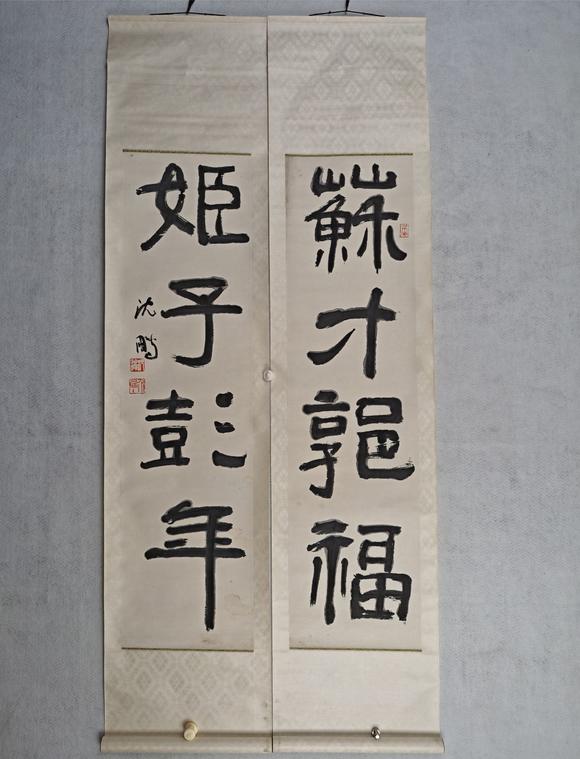 蘇才郭福
姬子彭年
沈鵬